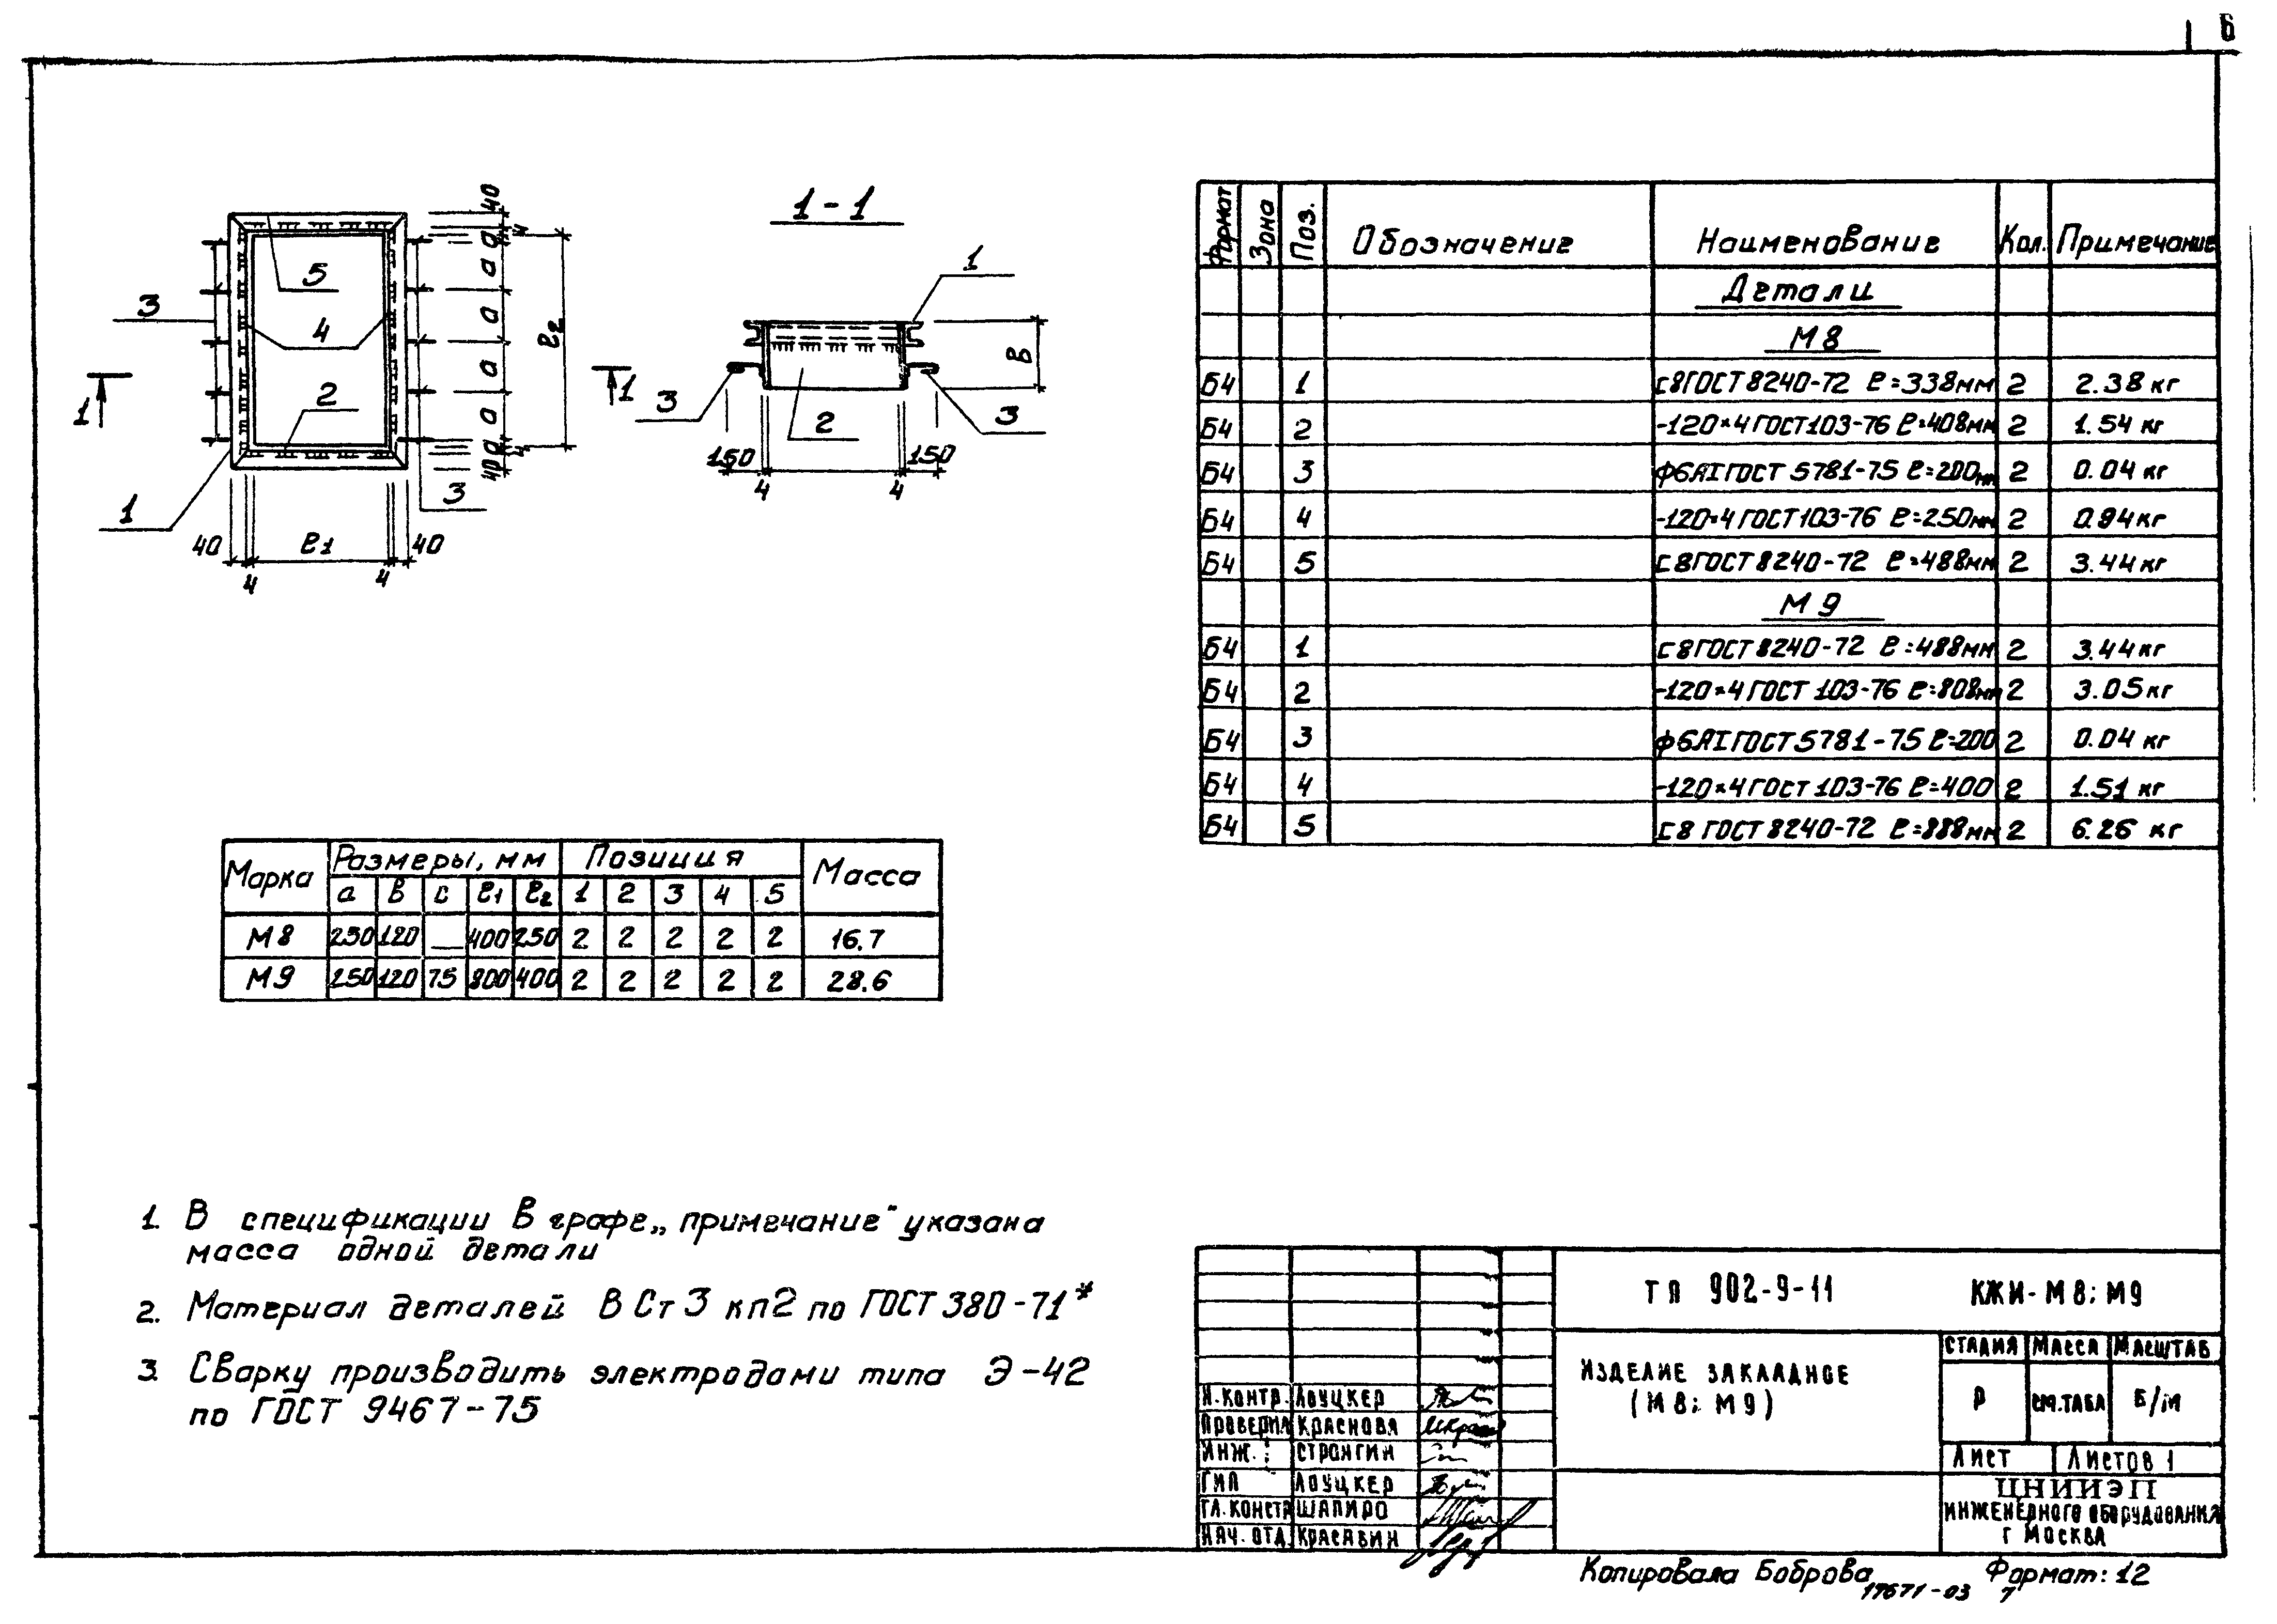 6
1-1
40
а
4
а
а
а
а
а
4
40
ℓ2
5
4
3
2
1
1
3
1
40
4
ℓ1
4
40
1
3
2
3
в
150
4
4
150
Формат Зона Поз. Обозначение Наименование Кол. Примечание
Детали
М8
Б4 1 С8ГОСТ8240-72 ℓ=338мм 2 2.38 кг
Б4 2 -120×4 ГОСТ103-76 ℓ=408мм 2 1.54 кг
Б4 3 ф6АI ГОСТ 5781-75 ℓ=200мм 2 0.04 кг
Б4 4 -120×4 ГОСТ103-76 ℓ=250мм 2 0.94 кг
Б4 5 С8ГОСТ8240-72 ℓ=488мм 2 3.44 кг
М9
Б4 1 С8ГОСТ8240-72 ℓ=488мм 2 3.44 кг
Б4 2 -120×4 ГОСТ 103-76 ℓ=808мм 2 3.05 кг
Б4 3 ф6АI ГОСТ5781-75 ℓ=200 2 0.04 кг
Б4 4 -120×4 ГОСТ 103-76 ℓ=400 2 1.51 кг
Б4 5 С8 ГОСТ 8240-72 ℓ=888мм 2 6.26 кг
Марка Размеры, мм Позиция Масса
а в с ℓ1 ℓ2 1 2 3 4 5
М8 250 120 — 400 250 2 2 2 2 2 16.7
М9 250 120 75 800 400 2 2 2 2 2 28.6
1. В спецификации в графе „примечание" указана
масса одной детали
2. Материал деталей В Ст 3 кп2 по ГОСТ 380-71*
3. Сварку производить электродами типа Э-42
по ГОСТ 9467-75
ТП 902-9-11 КЖИ-М8; М9
ИЗДЕЛИЕ ЗАКЛАДНОЕ
(М8; М9)
СТАДИЯ МАССА МАСШТАБ
Р СМ.ТАБЛ Б/М
Лист Листов 1
ЦНИИЭП
ИНЖЕНЕРНОГО ОБОРУДОВАНИЯ
г МОСКВА
Н.КОНТР. ЛОУЦКЕР
ПРОВЕРИЛ КРАСНОВА
ИНЖ. СТРОНГИН
ГИП ЛОУЦКЕР
ГЛ.КОНСТР ШАПИРО
НАЧ. ОТД. КРАСАВИН
Копировала Боброва Формат: 12
17671-03 7